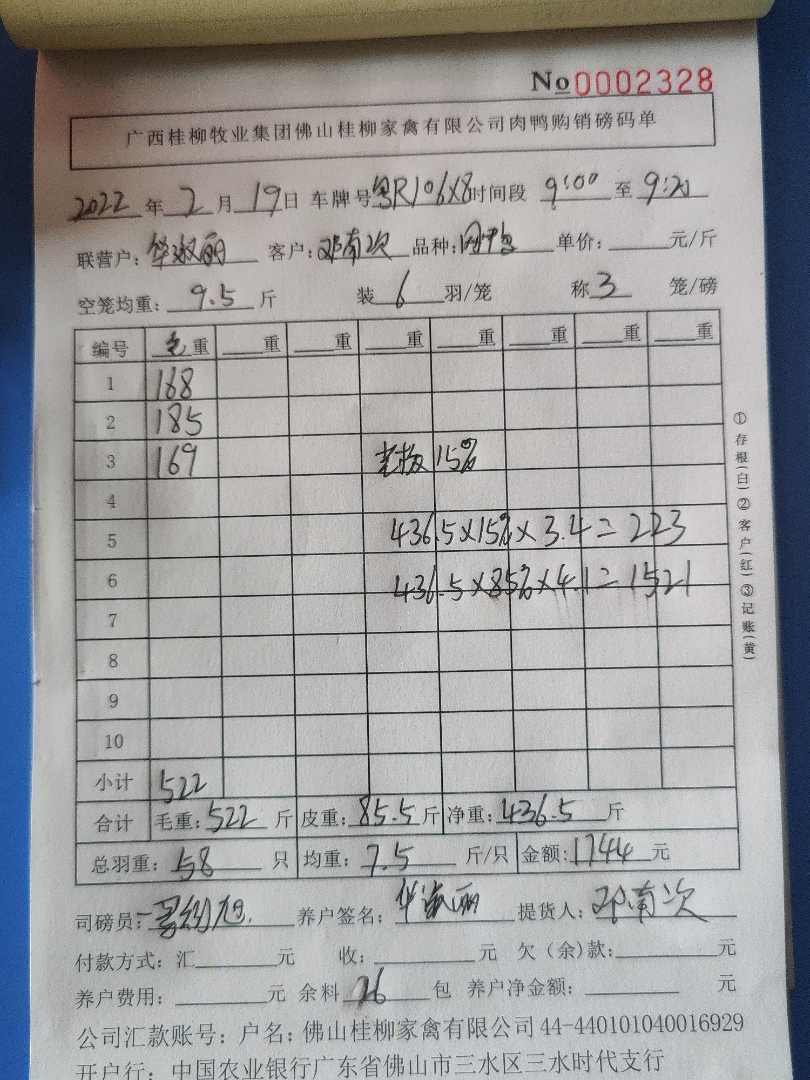 No 0002328
广西桂柳牧业集团佛山桂柳家禽有限公司肉鸭购销磅码单
2022 年 2 月 19 日 车牌号 粤R106X8 时间段 9:00 至 9:20
联营户: 华淑丽 客户: 邓南次 品种: 单价: 元/斤
空笼均重: 9.5 斤 装 6 羽/笼 称 3 笼/磅
编号 毛重 重 重 重 重 重 重 重
1 168
2 185
3 169 老板 15%
4
5 436.5×15%×3.4=223
6 436.5×85%×4.1=1521
7
8
9
10
小计 522
合计 毛重: 522 斤 皮重: 85.5 斤 净重: 436.5 斤
总羽重: 58 只 均重: 7.5 斤/只 金额: 1744 元
司磅员: 养户签名: 华淑丽 提货人: 邓南次
付款方式: 汇 元 收: 元 欠(余)款: 元
养户费用: 元 余料 26 包 养户净金额: 元
公司汇款账号: 户名: 佛山桂柳家禽有限公司 44-440101040016929
开户行: 中国农业银行广东省佛山市三水区三水时代支行
①存根(白)②客户(红)③记账(黄)